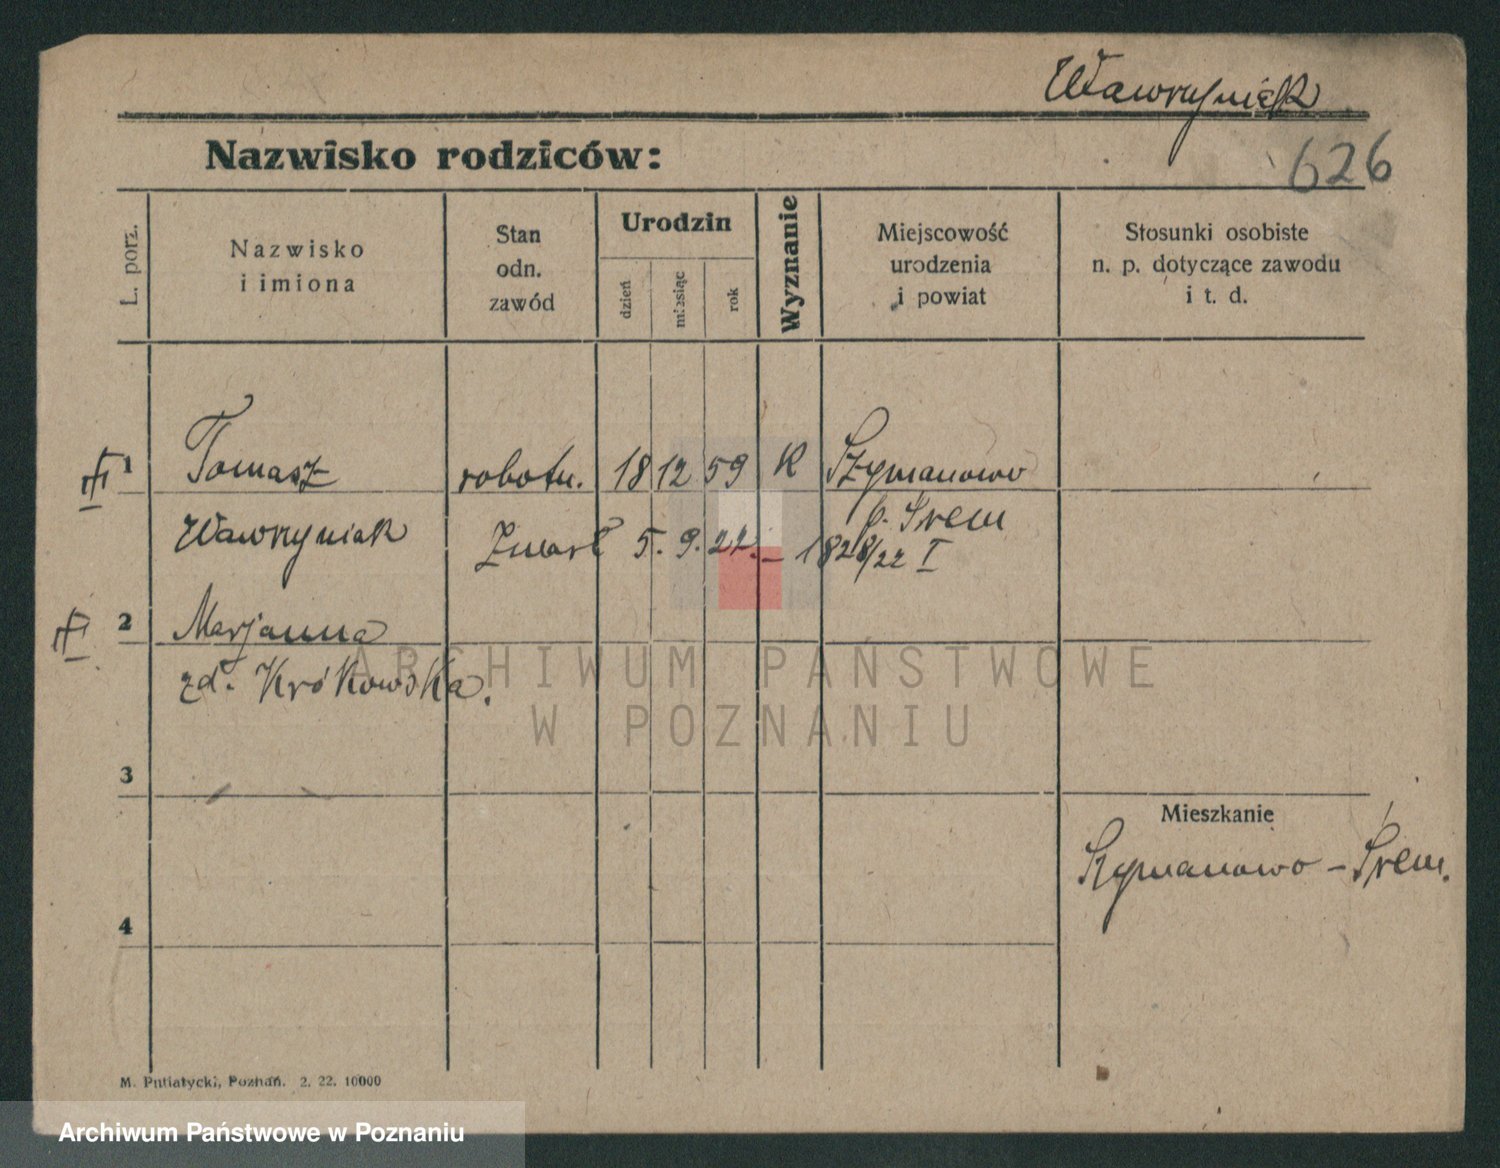 Wawryniak
626
Nazwisko rodziców:
L. porz.
Nazwisko
i imiona
Stan
odn.
zawód
Urodzin
dzień
miesiąc
rok
Wyznanie
Miejscowość
urodzenia
i powiat
Stosunki osobiste
n. p. dotyczące zawodu
i t. d.
1 Tomasz robotn. 18 12 59 K Szymanowo
p. Śrem
Wawryniak Zmarł 5. 9. 22. – 1828/22 I
2 Marjanna
zd. Krókowska.
ARCHIWUM PAŃSTWOWE
W POZNANIU
3
Mieszkanie
Szymanowo – Śrem.
4
M. Putiatycki, Poznań. 2. 22. 10000
Archiwum Państwowe w Poznaniu